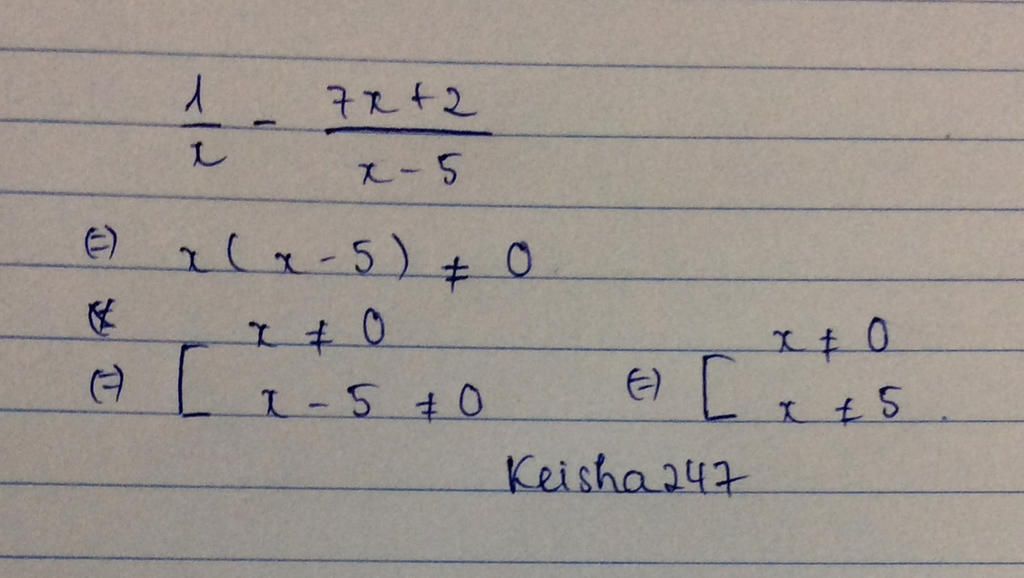 1/x - (7x+2)/(x-5)
(=) x(x-5) ≠ 0
x ≠ 0 x ≠ 0
(=) [ x-5 ≠ 0 (=) [ x ≠ 5.
Keisha247